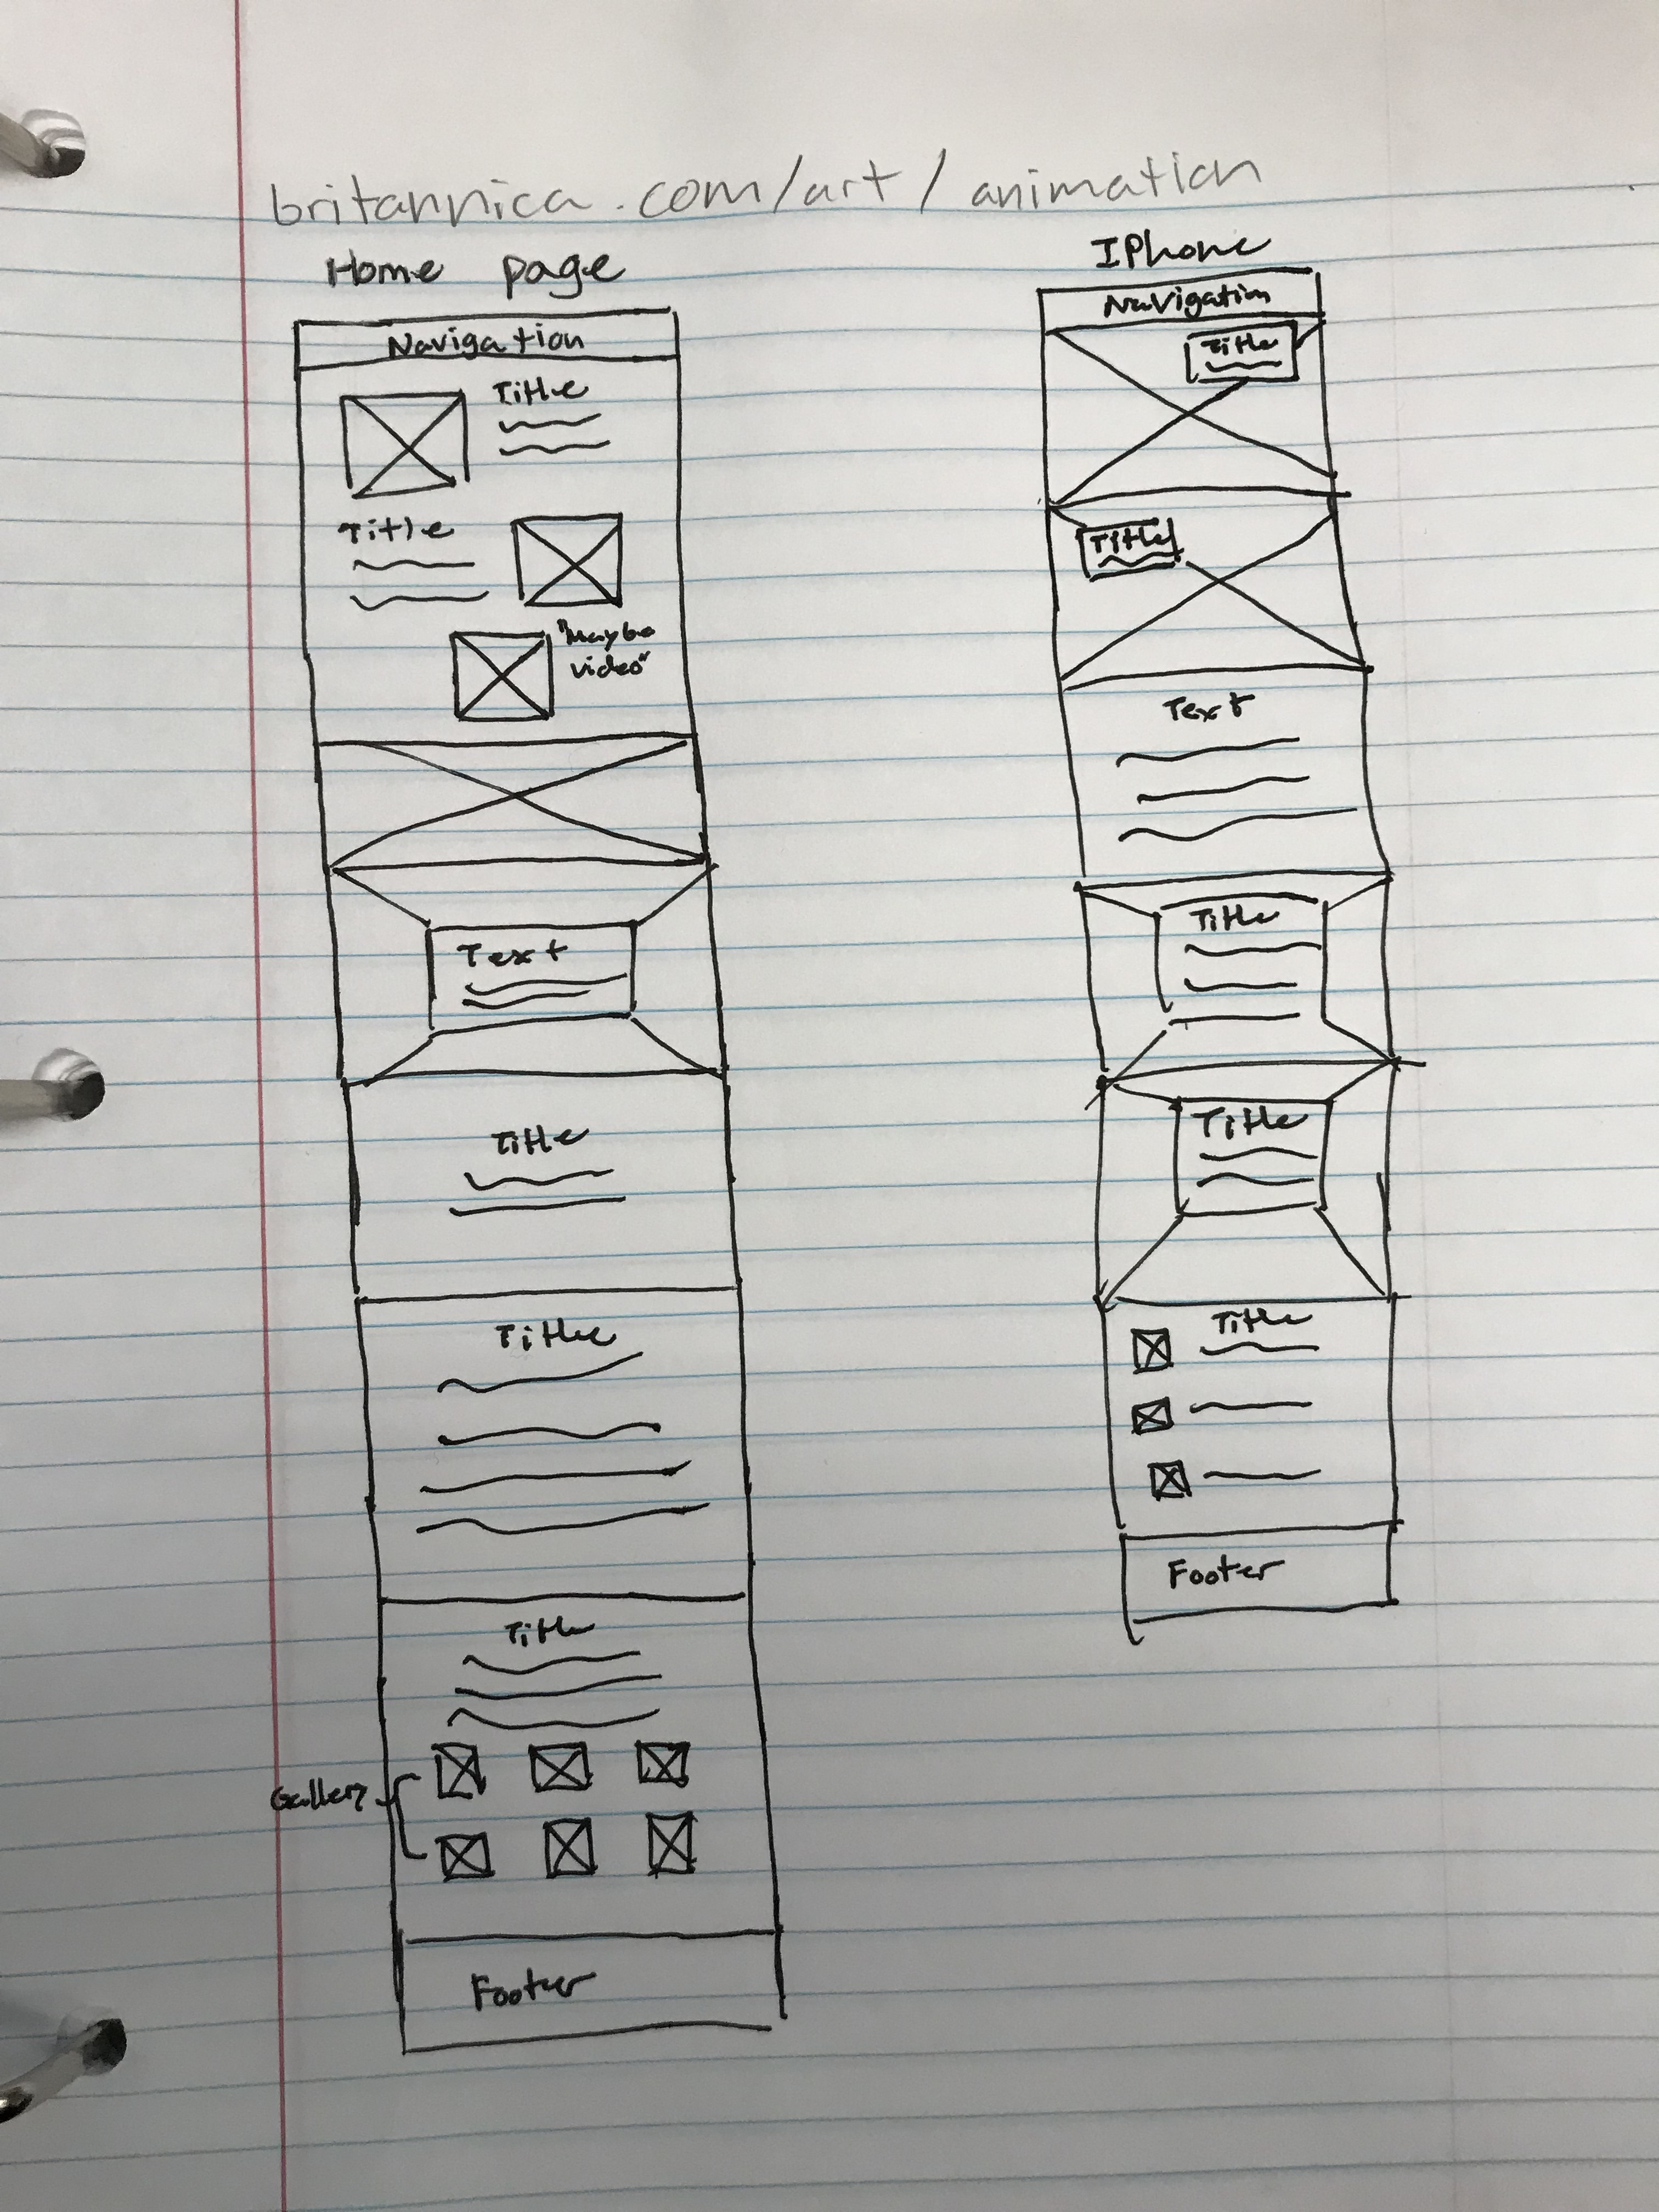 britannica.com/art/animation
Home page
Navigation
Title
Title
"Maybe
video"
Text
Title
Title
Title
Gallery
Footer
IPhone
Navigation
Title
Title
Text
Title
Title
Title
Footer